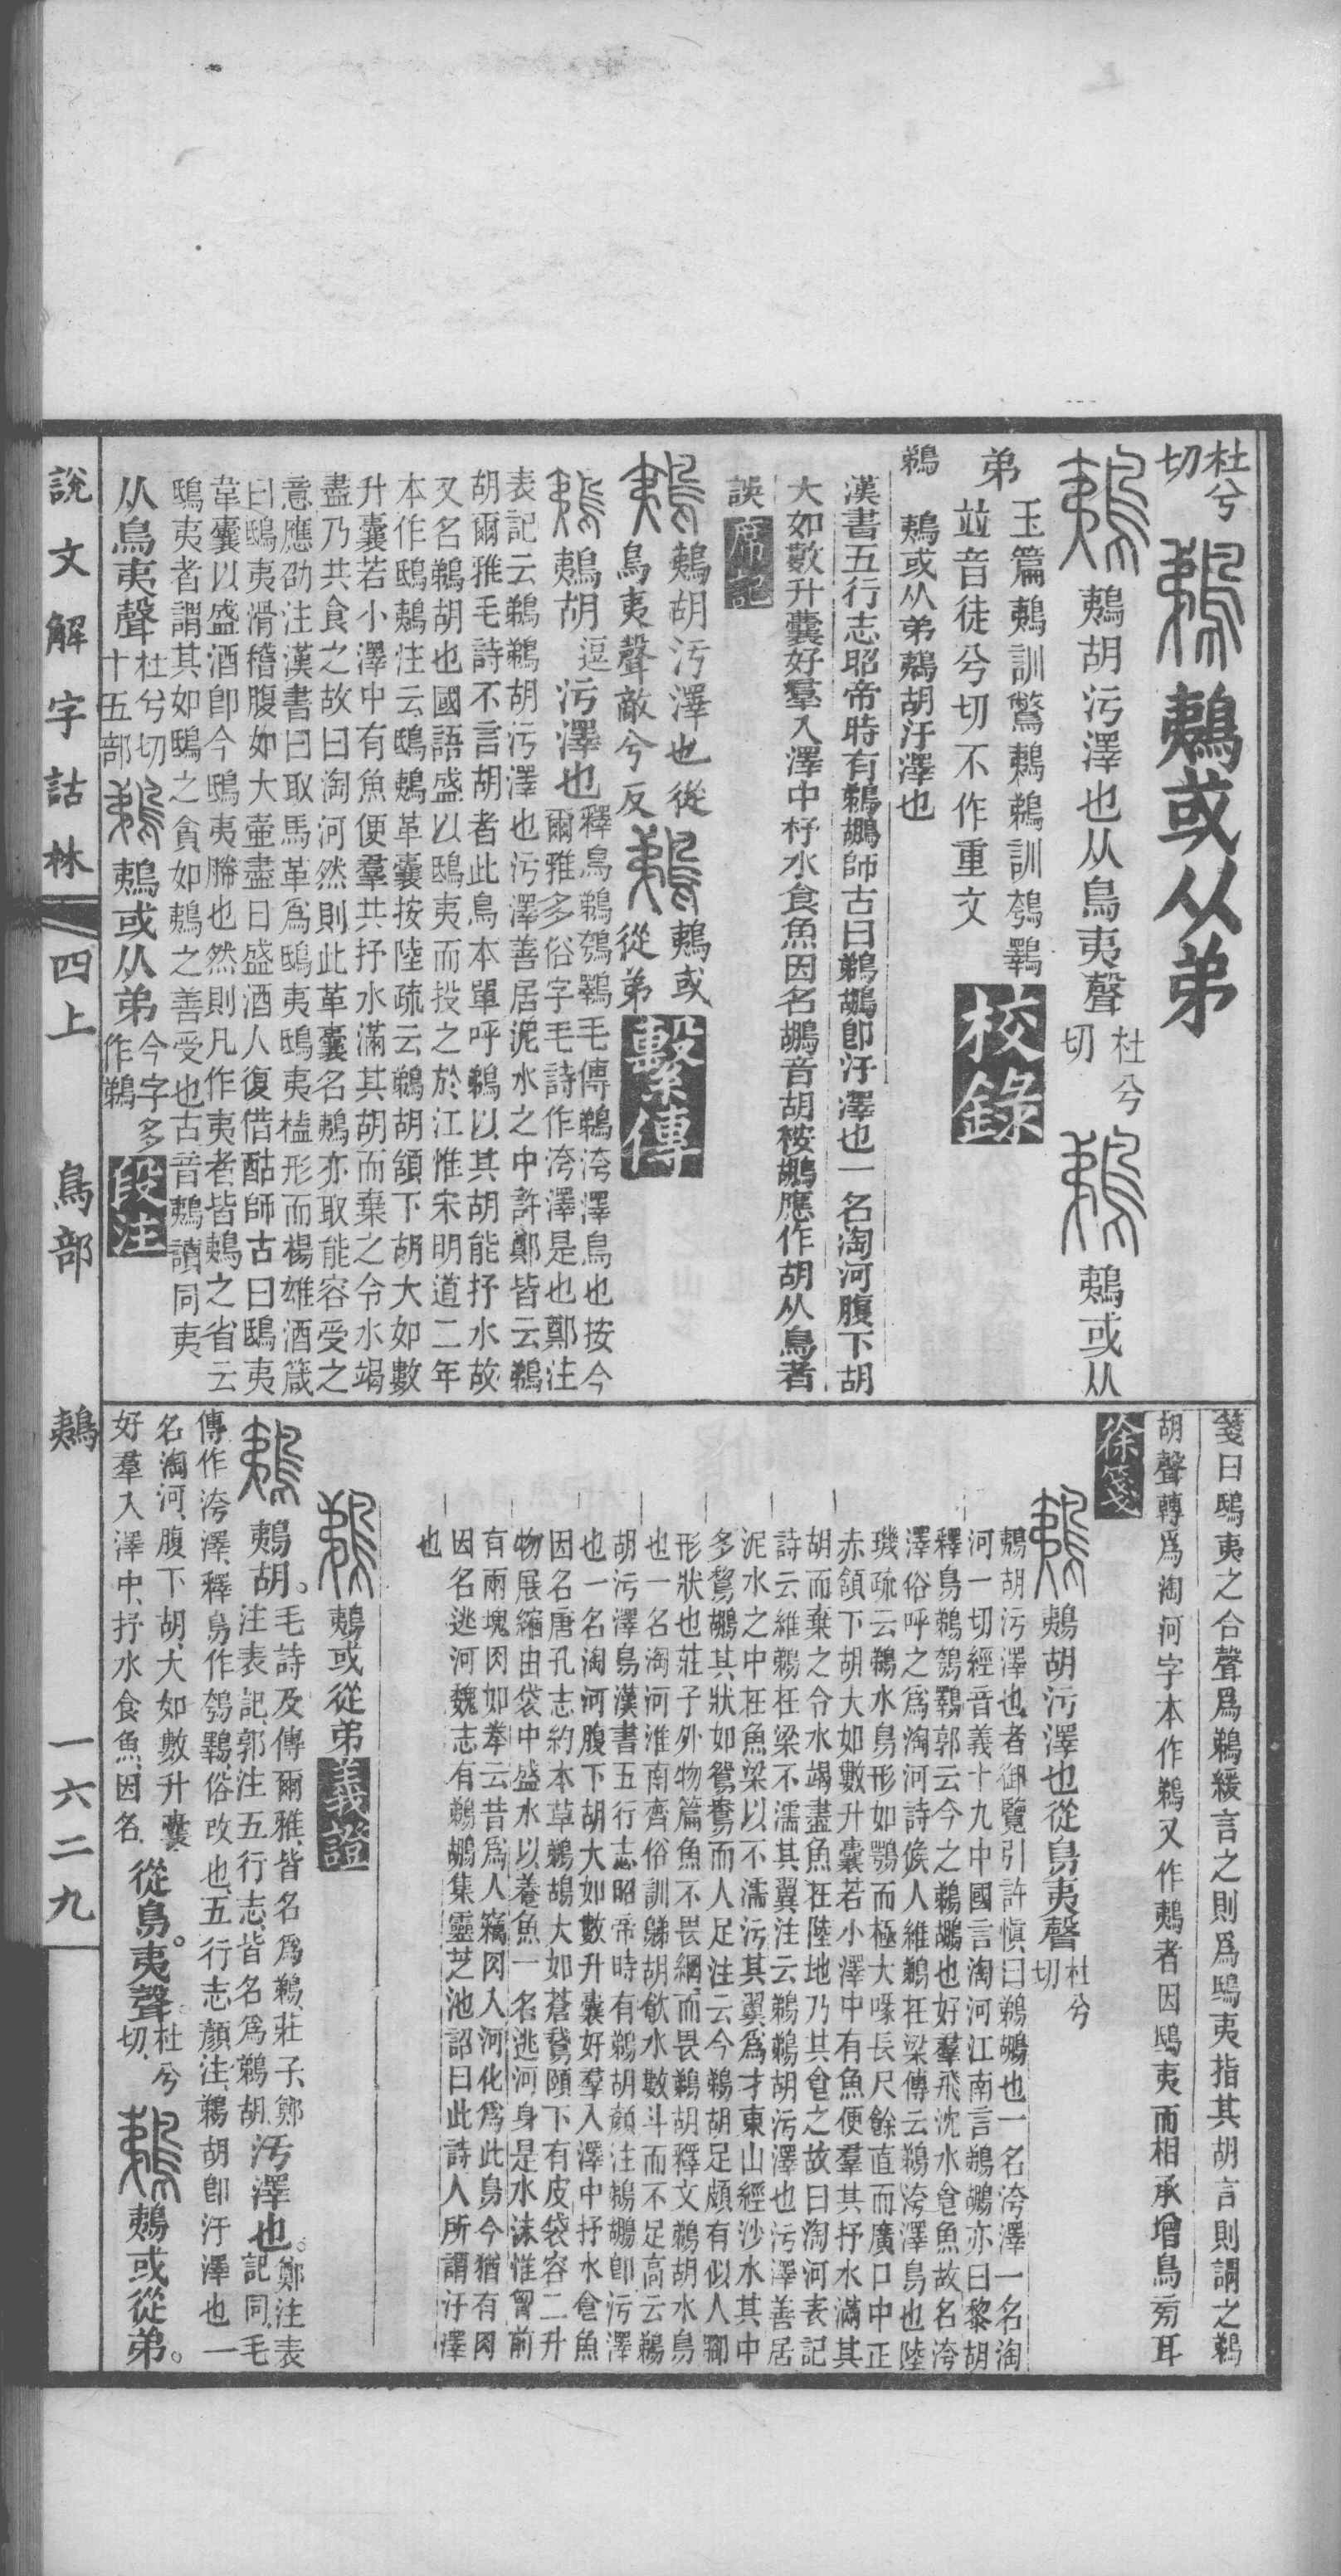 杜兮切
鵜 鶇或从弟
鶇 鶇胡污澤也从鳥夷聲杜兮切 鵜 鶇或从
弟
玉篇鶇訓驚鶇鵜訓鴮鸅
竝音徒兮切不作重文
校錄
鵜 鶇或从弟鶇胡汙澤也
漢書五行志昭帝時有鵜鶘師古曰鵜鶘卽汙澤也一名淘河腹下胡
大如數升囊好羣入澤中杼水食魚因名鶘音胡桉鶘應作胡从鳥者
誤
鶇胡污澤也從
鳥夷聲敵兮反 鵜 鶇或
從弟
繫傳
鶇胡逗污澤也釋鳥鵜鴮鸅毛傳鵜洿澤鳥也按今
爾雅多俗字毛詩作洿澤是也鄭注
表記云鵜鵜胡污澤也污澤善居泥水之中許鄭皆云鵜
胡爾雅毛詩不言胡者此鳥本單呼鵜以其胡能抒水故
又名鵜胡也國語盛以鴟夷而投之於江惟宋明道二年
本作鴟鶇注云鴟鶇革囊按陸疏云鵜胡頷下胡大如數
升囊若小澤中有魚便羣共抒水滿其胡而棄之令水竭
盡乃共食之故曰淘河然則此革囊名鶇亦取能容受之
意應劭注漢書曰取馬革爲鴟夷鴟夷榼形而楊雄酒箴
曰鴟夷滑稽腹如大壺盡日盛酒人復借酤師古曰鴟夷
韋囊以盛酒卽今鴟夷幐也然則凡作夷者皆鶇之省云
鴟夷者謂其如鴟之貪如鶇之善受也古音鶇讀同夷
从鳥夷聲杜兮切十五部 鵜 鶇或从弟今字多作鵜
段注
說文解字詁林 四上 鳥部 鶇 一六二九
箋曰鴟夷之合聲爲鵜緩言之則爲鴟夷指其胡言則謂之鵜
胡聲轉爲淘河字本作鵜又作鶇者因鴟夷而相承增鳥旁耳
徐箋
鶇胡污澤也從鳥夷聲杜兮切
鶇胡污澤也者御覽引許愼曰鵜鶘也一名洿澤一名淘
河一切經音義十九中國言淘河江南言鵜鶘亦曰黎胡
釋鳥鵜鴮鸅郭云今之鵜鶘也好羣飛沈水食魚故名洿
澤俗呼之爲淘河詩候人維鵜在梁傳云鵜洿澤鳥也陸
璣疏云鵜水鳥形如鶚而極大喙長尺餘直而廣口中正
赤頷下胡大如數升囊若小澤中有魚便羣其抒水滿其
胡而棄之令水竭盡魚在陸地乃其食之故曰淘河表記
詩云維鵜在梁不濡其翼注云鵜鵜胡污澤也污澤善居
泥水之中在魚梁以不濡污其翼爲才東山經沙水其中
多鵹鶘其狀如鴛鴦而人足注云今鵜胡足頗有似人腳
形狀也莊子外物篇魚不畏綱而畏鵜胡釋文鵜胡水鳥
也一名淘河淮南齊俗訓鵜胡飮水數斗而不足高云鵜
胡污澤鳥漢書五行志昭帝時有鵜胡顏注鵜鶘卽污澤
也一名淘河腹下胡大如數升囊好羣入澤中抒水食魚
因名唐孔志約本草鵜鶘大如蒼鵞頤下有皮袋容二升
物展縮由袋中盛水以養魚一名逃河身是水沫惟胷前
有兩塊肉如拳云昔爲人竊肉入河化爲此鳥今猶有肉
因名逃河魏志有鵜鶘集靈芝池詔曰此詩人所謂汙澤
也
鵜 鶇或從弟
義證
鶇胡。毛詩及傳爾雅、皆名爲鵜、莊子、鄭
注表記、郭注五行志、皆名爲鵜胡、污澤也。鄭注表
記同、毛
傳作洿澤、釋鳥作鴮鸅、俗改也、五行志顏注、鵜胡卽汙澤也一
名淘河、腹下胡、大如數升囊、
好羣入澤中、抒水食魚、因名、從鳥。夷聲。杜兮切、 鵜 鶇或從弟。